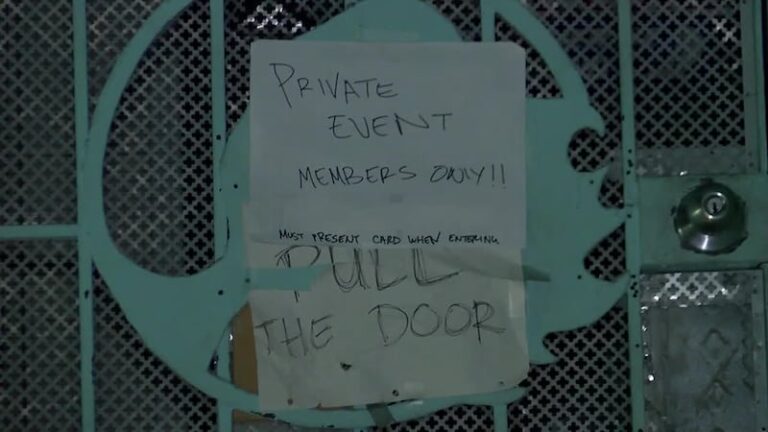 PRIVATE
EVENT
MEMBERS ONLY!!
MUST PRESENT CARD WHEN ENTERING
PULL
THE DOOR